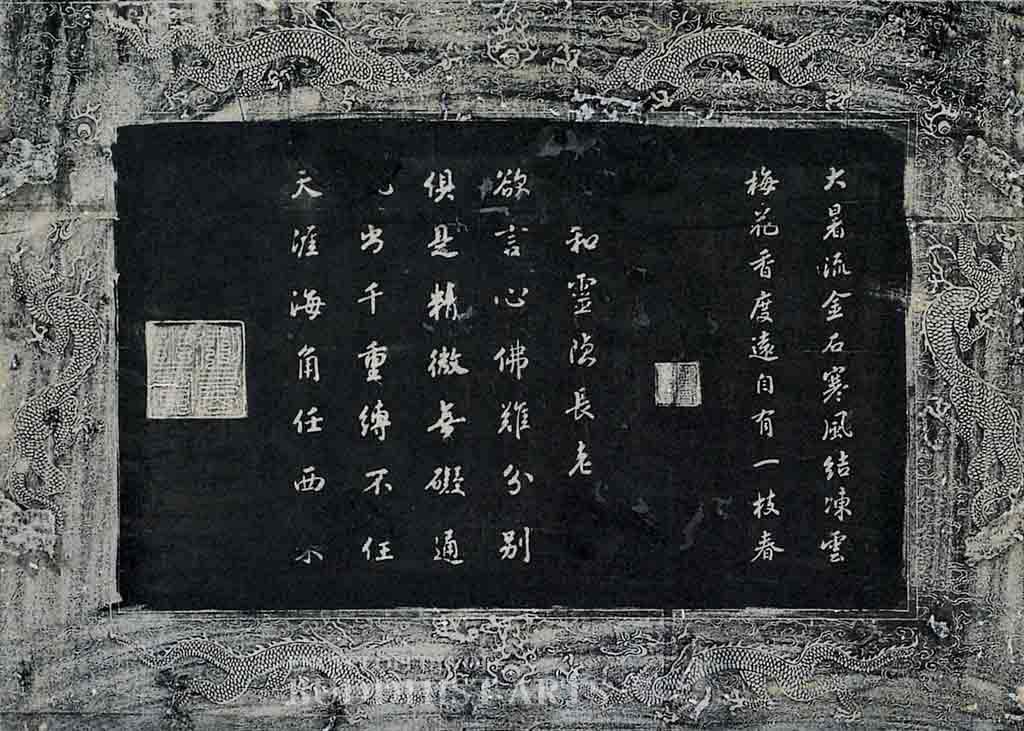 大暑流金石寒風結凍雲
梅花香度遠自有一枝春
和靈隱長老
欲言心佛難分別
俱是精微無礙通
出千重縛不住
天涯海角任西
BUDDHIST ARTS